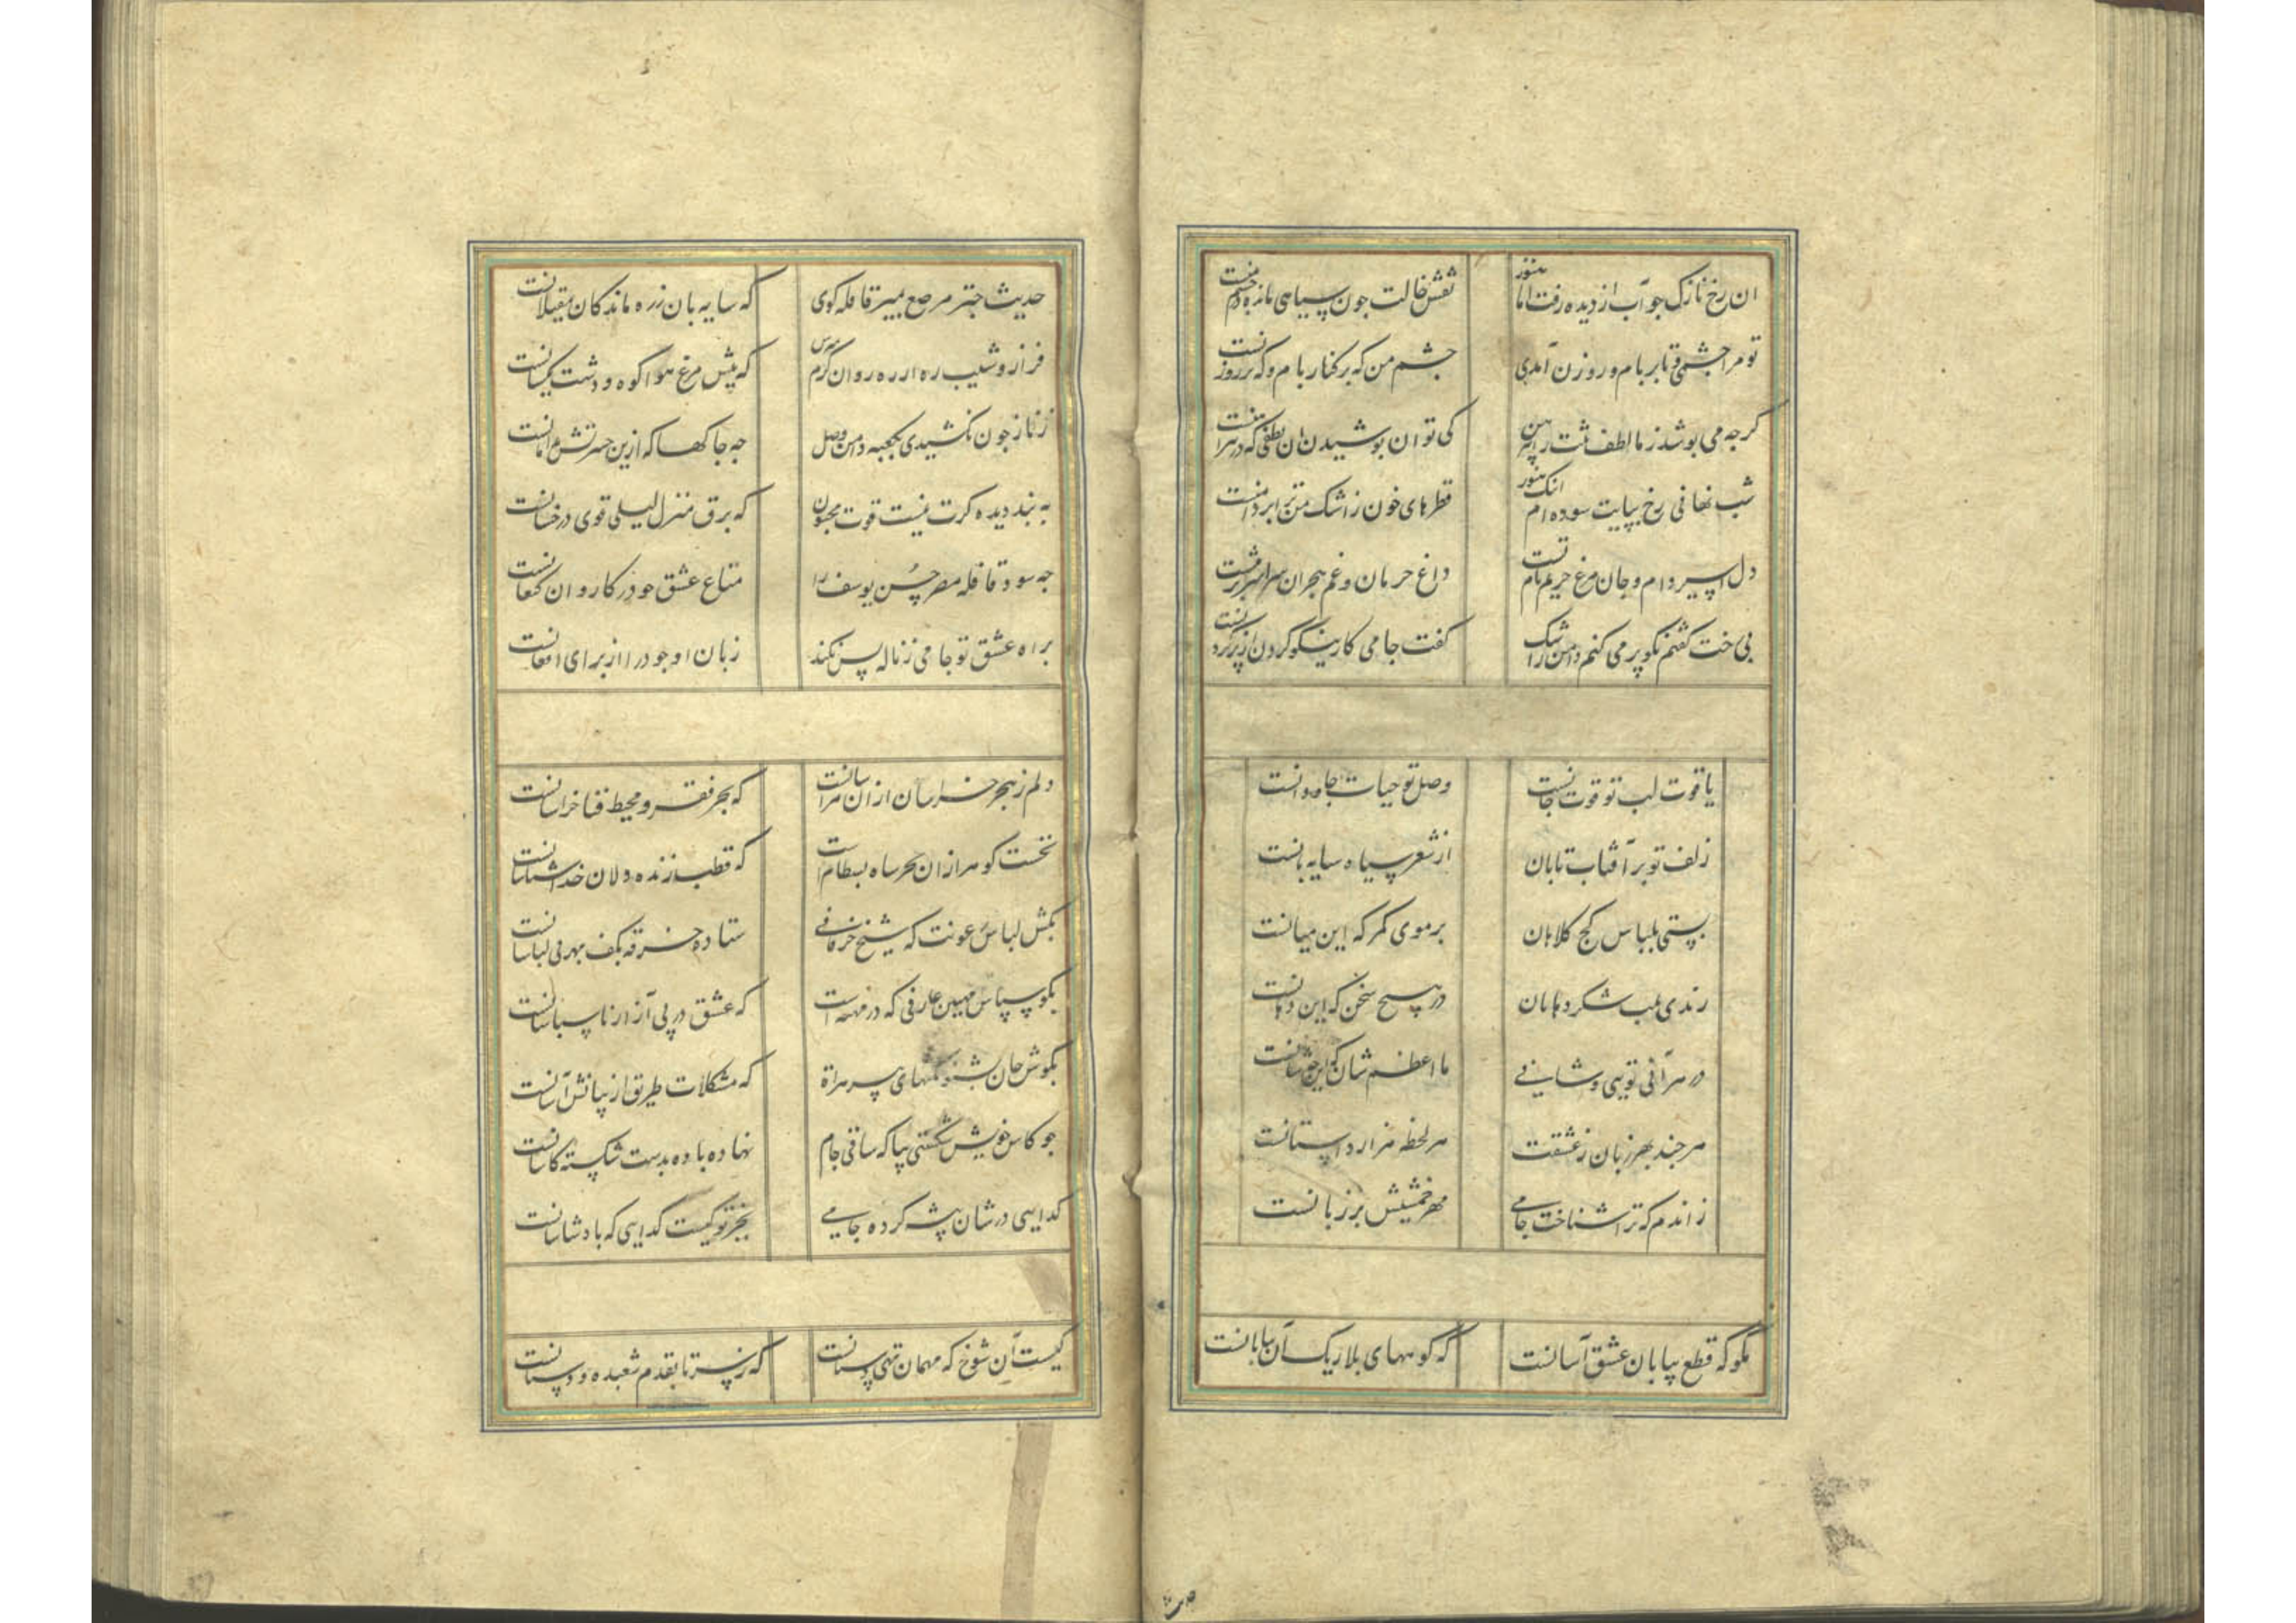 ان رخ نازک جو آب از دیده رفت اما هنوز نقش خالت جون سیاهی مانده در چشم منست
تو مرا چشمی و تا بر بام و روزن آمدی جشم من که بر کنار بام و که بر روزنست
کرجه می بوشد ز ما لطف تنت را پیرهن کی توان بوشیدن ان لطفی که در هر تنست
شب نهانی رخ بپایت سوده ام انک هنوز قطرهای خون ز اشک من ترا بر دامنست
دل اسیر دام و جان مرغ حریم بام تست داغ حرمان و غم هجران سراسر بر منست
بی خت کفتم نکو پر می کنم دامن ز اشک کفت جامی کار نیکو کردن از پر کردنست
یاقوت لب تو قوت جانست وصل تو حیات جاودانست
زلف تو بر آفتاب تابان از شعر سیاه سایه بانست
بستی بلباس کج کلاهان بر موی کمر که این میانست
زندی بلب شکر دهانان در هیچ سخن که این دهانست
در هر آنی تویی و شانی ما اعظم شان که این جه شانست
هر جند بهر زبان ز عشقت هر لحظه هزار داستانست
زاندم که ترا شناخت جامی مهر خمشیش بر زبانست
مکو که قطع بیابان عشق آسانست که کوههای بلا ریک آن بیابانست
حدیث جتر مرصع بمیر قافله کوی که سایه بان ز ره ماندکان مغیلانست
فراز و شیب ره از ره روان کرم مپرس که پیش مرغ هوا کوه و دشت یکسانست
ز ناز جون نکشیدی بکعبه دامن وصل جه جاکهاکه ازین حسرتش بدامانست
به بند دیده کرت نیست قوت مجنون که برق منزل لیلی قوی درخشانست
جه سود قافله مصر حسن یوسف را متاع عشق جو در کاروان کنعانست
براه عشق تو جامی ز ناله بس نکند زبان او جو درا از برای افغانست
دلم ز هجر خراسان از ان هراسانست که بحر فقر و محیط فنا خراسانست
نخست کوهر از ان بحر شاه بسطام است که قطب زنده دلان خدا شناسانست
بکش لباس رعونت که شیخ خرقانی ستاده خرقه بکف بهر بی لباسانست
بکو سپاس مهین عارفی که در مهنه است که عشق در پی آزار ناسپاسانست
بکوش جان بشنو نکتهای پیر هراة که مشکلات طریق از بیانش آسانست
جو کاس خویش شکستی بیا که ساقی جام نهاده باده بدست شکسته کاسانست
کدایی درشان پیشه کرده جامی بجز تو کیست کدایی که بادشاسانست
کیست آن شوخ که مهمان تهی دستانست که ز سر تا بقدم شعبده و دستانست